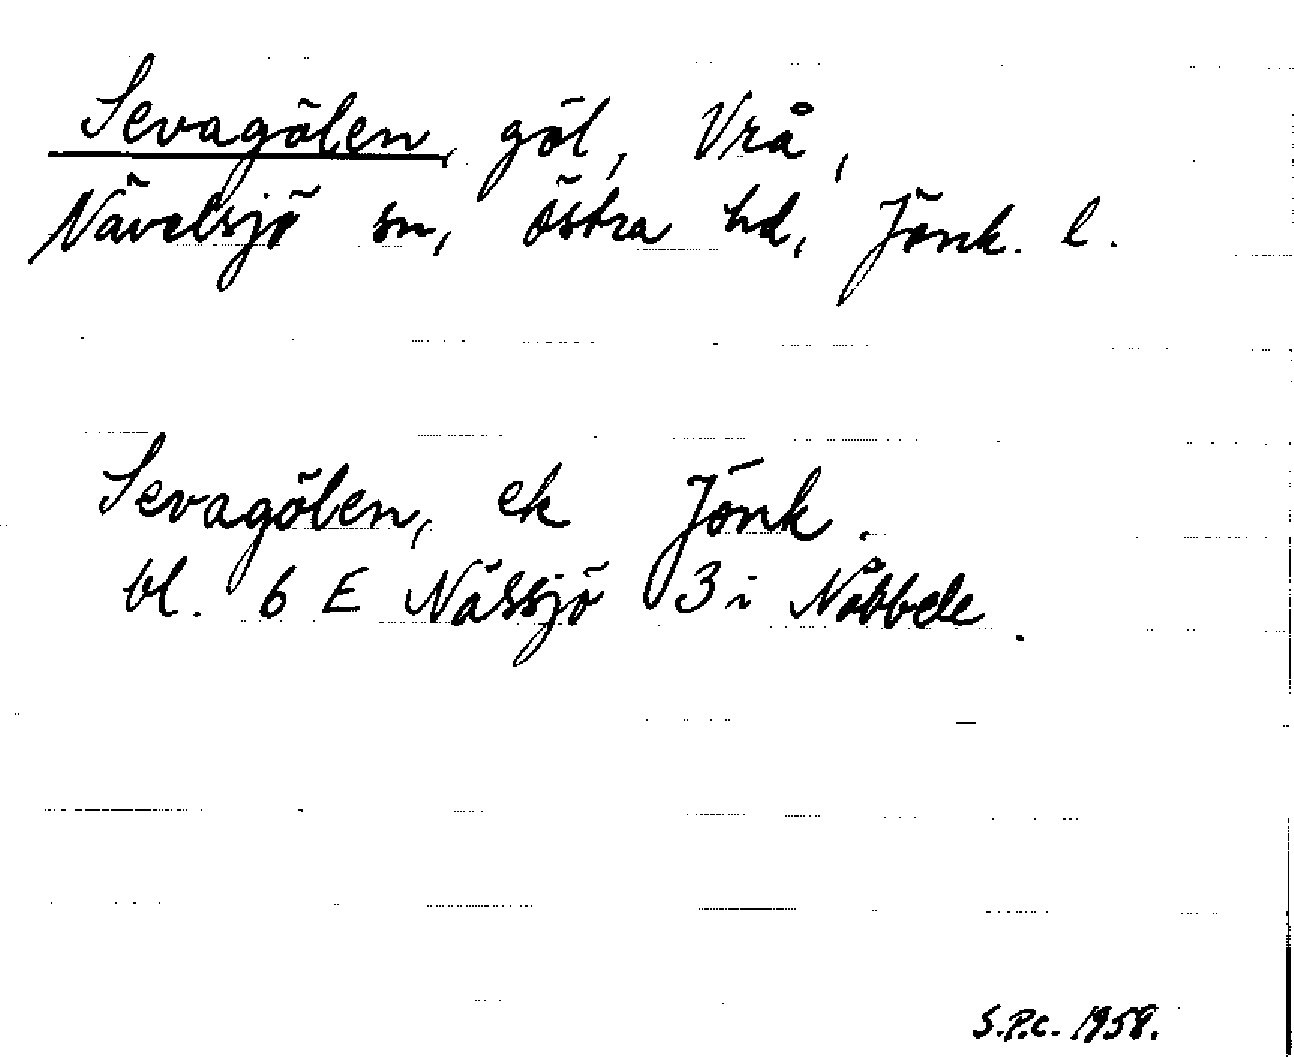 Sevagölen, göl, Vrå,
Nävelsjö sn, östra hd, Jönk. l.
Sevagölen, ek Jönk.
bl. 6 E Nässjö 3 i Nåbbele.
S.P.C. 1958.